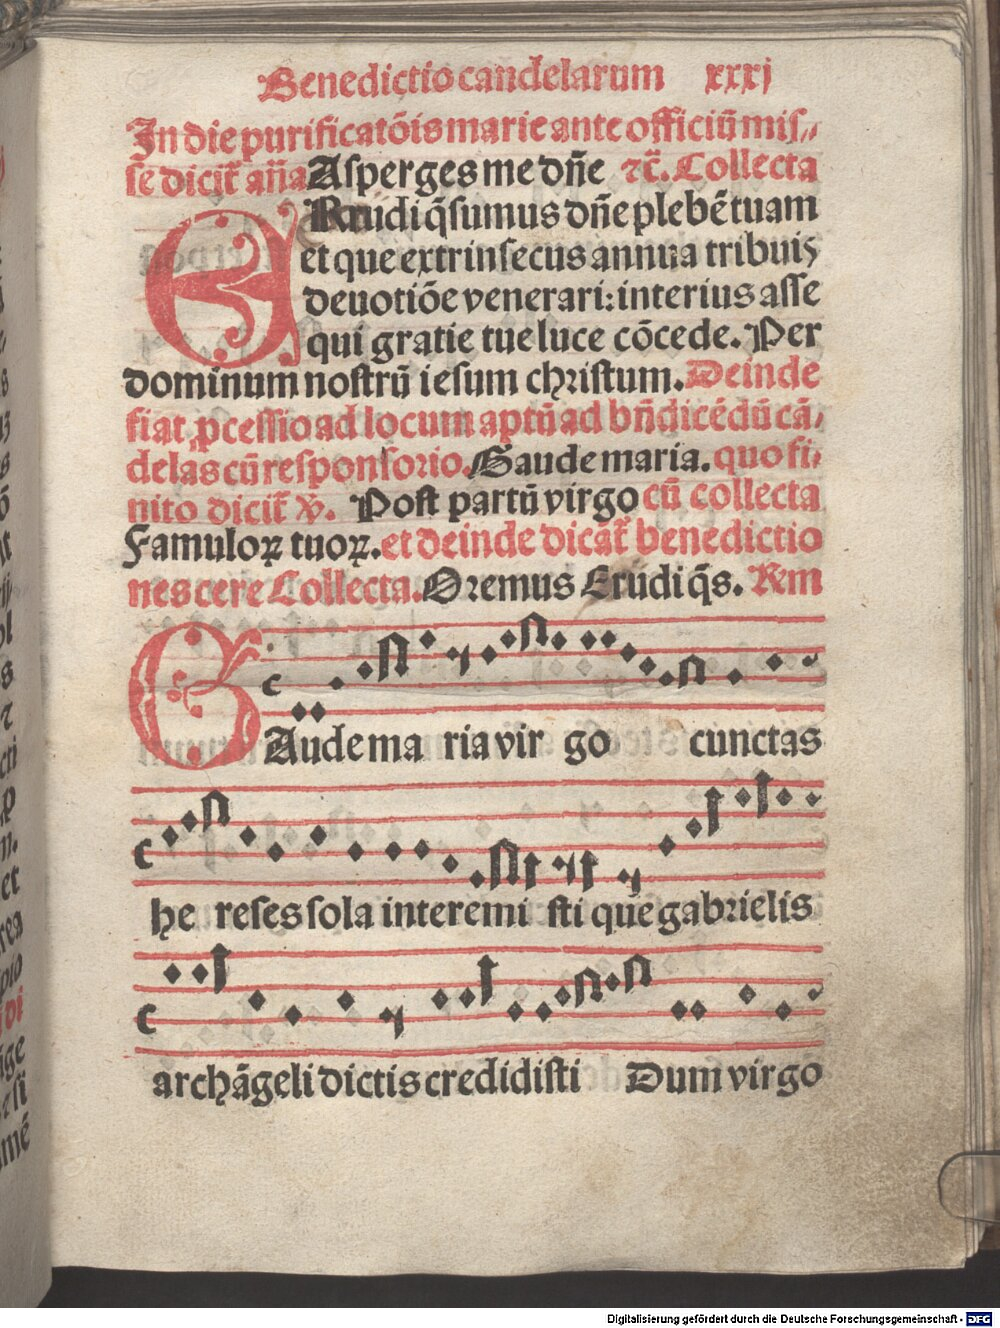 Benedictio candelarum xxxj
In die purificatōis marie ante officiū mis⸗
se dicit̄ an̄a Asperges me dn̄e ⁊c̄. Collecta
ERudi q̄sumus dn̄e plebē tuam
et que extrinsecus annua tribuis
deuotiōe venerari: interius asse
qui gratie tue luce cōcede. Per
dominum nostrū iesum christum. Deinde
fiat ꝓcessio ad locum aptū ad bn̄dicēdū cā⸗
delas cū responsorio. Gaude maria. quo fi⸗
nito dicit̄ ℣. Post partū virgo cū collecta
Famuloꝝ tuoꝝ. et deinde dicāt̄ benedictio
nes cere Collecta. Oremus Erudi q̄s. Rm
GAude ma ria vir go cunctas
he reses sola interemi sti que gabrielis
archāgeli dictis credidisti Dum virgo
Digitalisierung gefördert durch die Deutsche Forschungsgemeinschaft - DFG